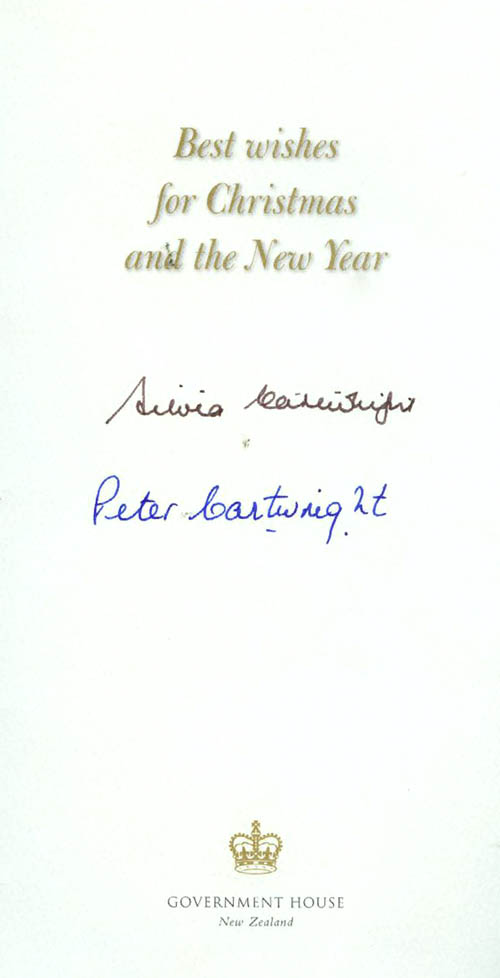 Best wishes
for Christmas
and the New Year
Silvia Cartwright
Peter Cartwright
GOVERNMENT HOUSE
New Zealand